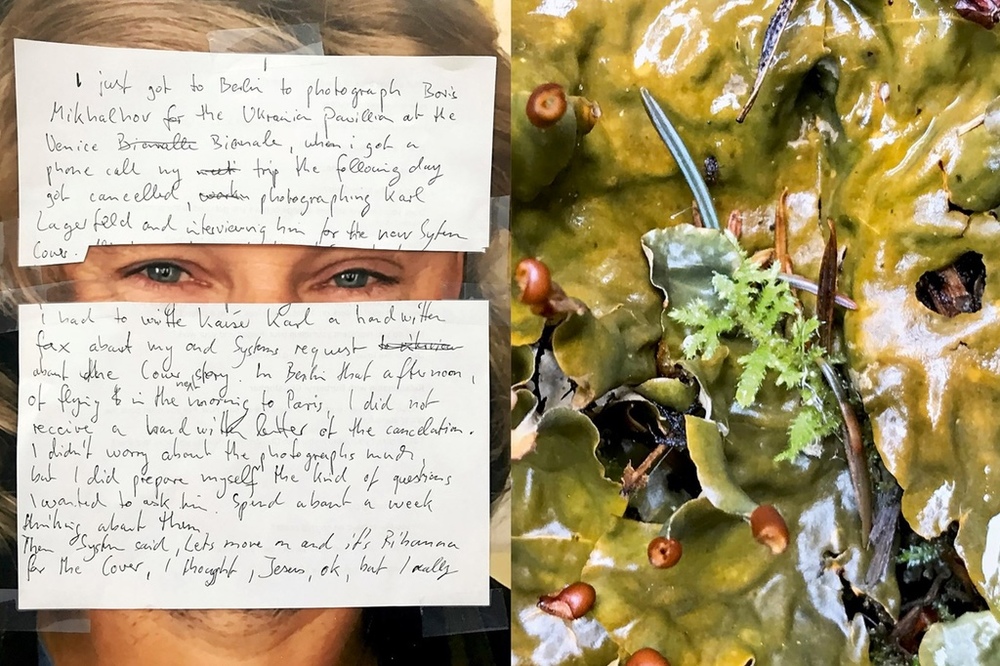 I just got to Berlin to photograph Boris
Mikhalhov for the Ukranian Pavillion at the
Venice Biennale, when i got a
phone call my trip the following day
got cancelled, photographing Karl
Lagerfeld and interviewing him for the new System
Cover.
I had to write Kaiser Karl a handwritten
fax about my and Systems request
about the Cover story. In Berlin that afternoon,
of flying in the next morning to Paris, I did not
receive a hand with letter of the cancelation.
I didn't worry about the photographs much,
but I did prepare myself the kind of questions
I wanted to ask him. Spend about a week
thinking about them.
Then System said, Lets move on and it's Rihanna
for the Cover, I thought, Jesus, ok, but I really